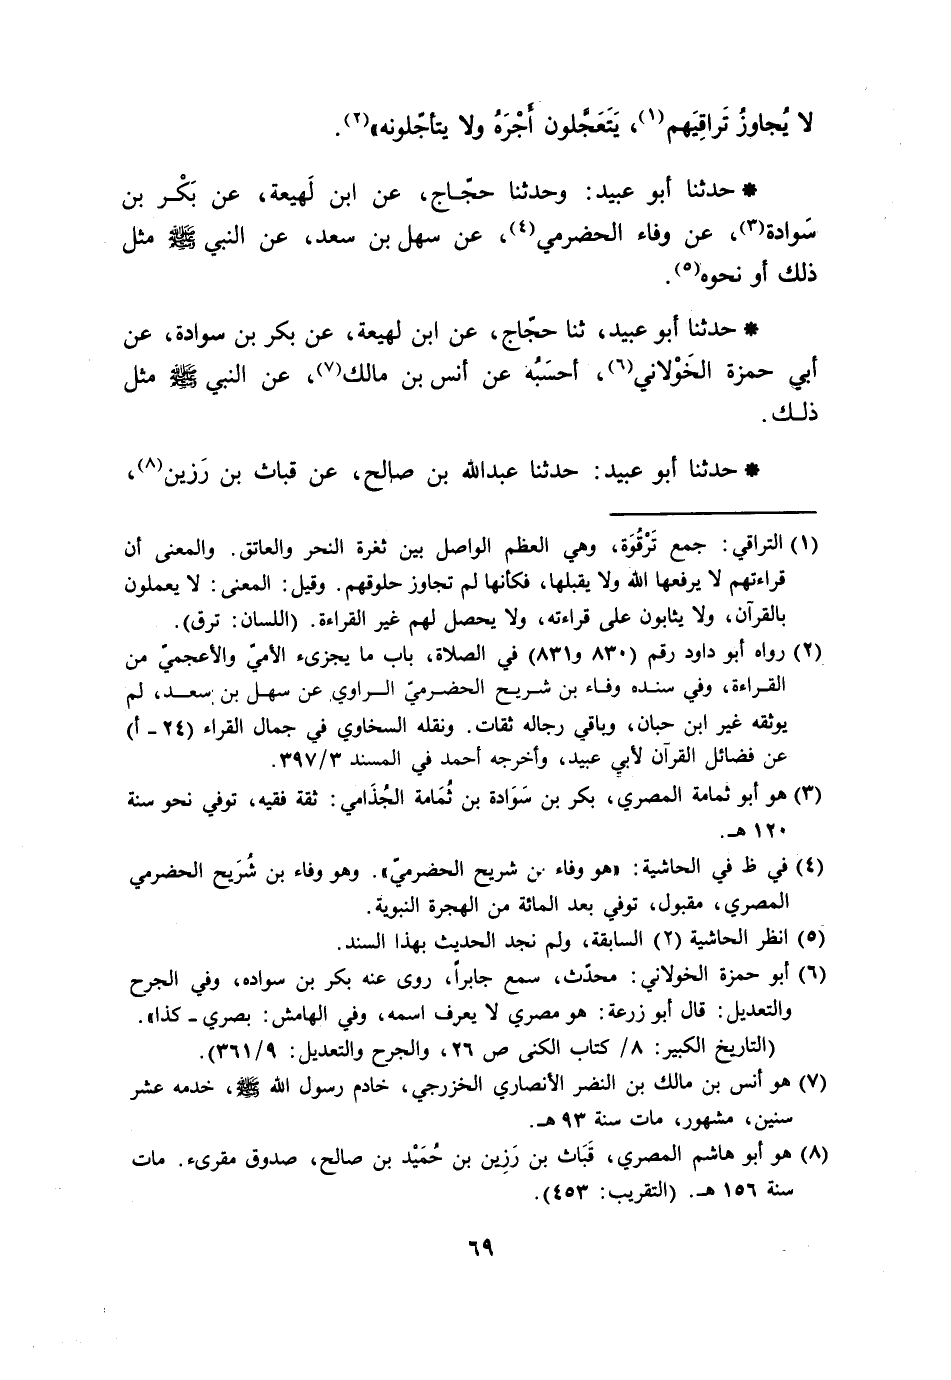 لا يُجاوزُ تَراقِيَهم(١)، يَتَعَجَّلون أَجْرَهُ ولا يتأجّلونه»(٢).
* حدثنا أبو عبيد: وحدثنا حجّاج، عن ابن لَهيعة، عن بَكْر بن
سَوادة(٣)، عن وفاء الحضرمي(٤)، عن سهل بن سعد، عن النبي ﷺ مثل
ذلك أو نحوه(٥).
* حدثنا أبو عبيد، ثنا حجّاج، عن ابن لهيعة، عن بكر بن سوادة، عن
أبي حمزة الخَوْلاني(٦)، أحسَبُه عن أنس بن مالك(٧)، عن النبي ﷺ مثل
ذلك.
* حدثنا أبو عبيد: حدثنا عبدالله بن صالح، عن قباث بن رَزين(٨)،
(١) التراقي: جمع تَرْقُوَة، وهي العظم الواصل بين ثغرة النحر والعاتق. والمعنى أن
قراءتهم لا يرفعها الله ولا يقبلها، فكأنها لم تجاوز حلوقهم. وقيل: المعنى: لا يعملون
بالقرآن، ولا يثابون على قراءته، ولا يحصل لهم غير القراءة. (اللسان: ترق).
(٢) رواه أبو داود رقم (٨٣٠ و٨٣١) في الصلاة، باب ما يجزىء الأميّ والأعجميّ من
القراءة، وفي سنده وفاء بن شريح الحضرميّ الراوي عن سهل بن سعد، لم
يوثقه غير ابن حبان، وباقي رجاله ثقات. ونقله السخاوي في جمال القراء (٢٤ - أ)
عن فضائل القرآن لأبي عبيد، وأخرجه أحمد في المسند ٣٩٧/٣.
(٣) هو أبو ثمامة المصري، بكر بن سَوَادة بن ثُمَامة الجُذَامي: ثقة فقيه، توفي نحو سنة
١٢٠ هـ.
(٤) في ظ في الحاشية: «هو وفاء بن شريح الحضرميّ». وهو وفاء بن شُرَيح الحضرمي
المصري، مقبول، توفي بعد المائة من الهجرة النبوية.
(٥) انظر الحاشية (٢) السابقة، ولم نجد الحديث بهذا السند.
(٦) أبو حمزة الخولاني: محدّث، سمع جابراً، روى عنه بكر بن سواده، وفي الجرح
والتعديل: قال أبو زرعة: هو مصري لا يعرف اسمه، وفي الهامش: بصري - كذا».
(التاريخ الكبير: ٨/ كتاب الكنى ص ٢٦، والجرح والتعديل: ٣٦١/٩).
(٧) هو أنس بن مالك بن النضر الأنصاري الخزرجي، خادم رسول الله ﷺ، خدمه عشر
سنين، مشهور، مات سنة ٩٣ هـ.
(٨) هو أبو هاشم المصري، قَبَاث بن رَزِين بن حُمَيْد بن صالح، صدوق مقرىء. مات
سنة ١٥٦ هـ. (التقريب: ٤٥٣).
٦٩